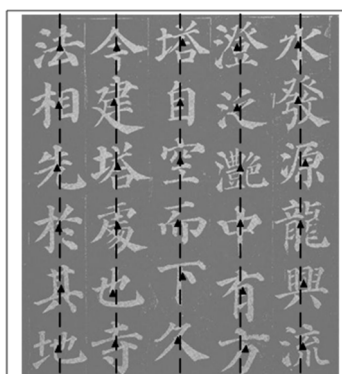 水發源龍興流
澄泛灩中有方
塔自空而下久
今建塔處也寺
法相先於其地